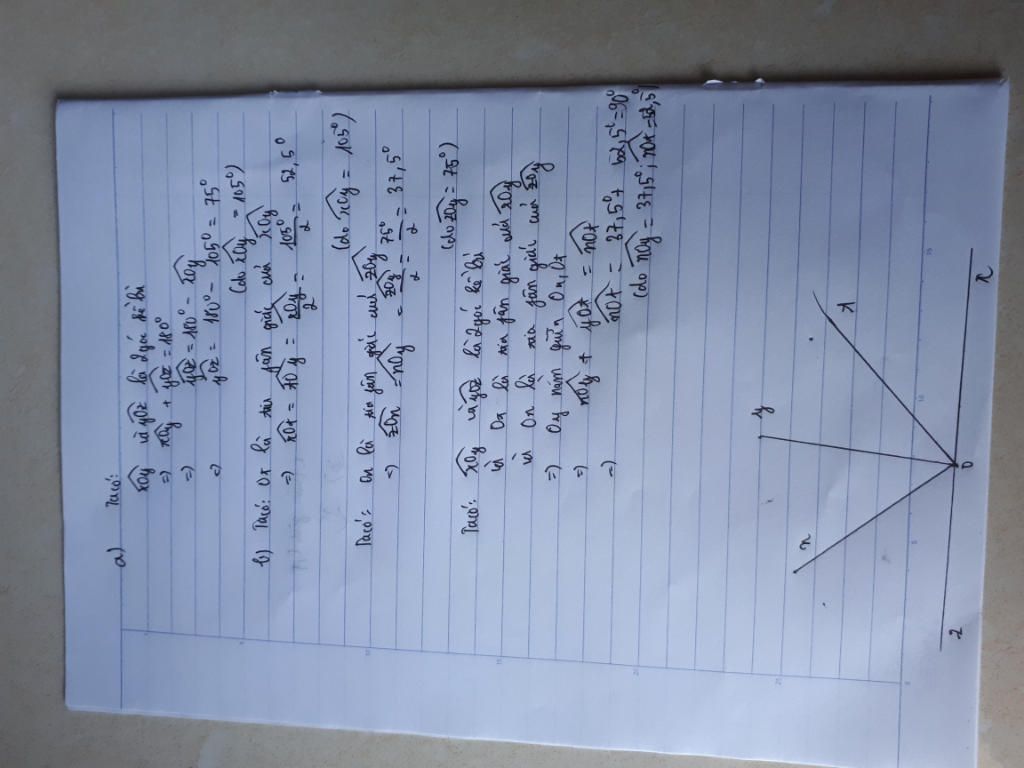 a) Ta có:
xOy và yOz là 2 góc kề bù
=) xOy + yOz = 180°
=) yOz = 180° - xOy
(=) yOz = 180° - 105° = 75°
(do xOy = 105°)
b) Ta có: Ot là tia phân giác của xOy
=) xOt = tOy = xOy/2 = 105°/2 = 52,5°
(do xOy = 105°)
Ta có: On là tia phân giác của zOy
=) zOn = nOy = zOy/2 = 75°/2 = 37,5°
(do zOy = 75°)
Ta có: xOy và yOz là 2 góc kề bù
và Ot là tia phân giác của xOy
và On là tia phân giác của zOy
=) Oy nằm giữa On, Ot
=) nOy + yOt = nOt
=) nOt = 37,5° + 52,5° = 90°
(do nOy = 37,5°; yOt = 52,5°)
n
y
t
z
O
x